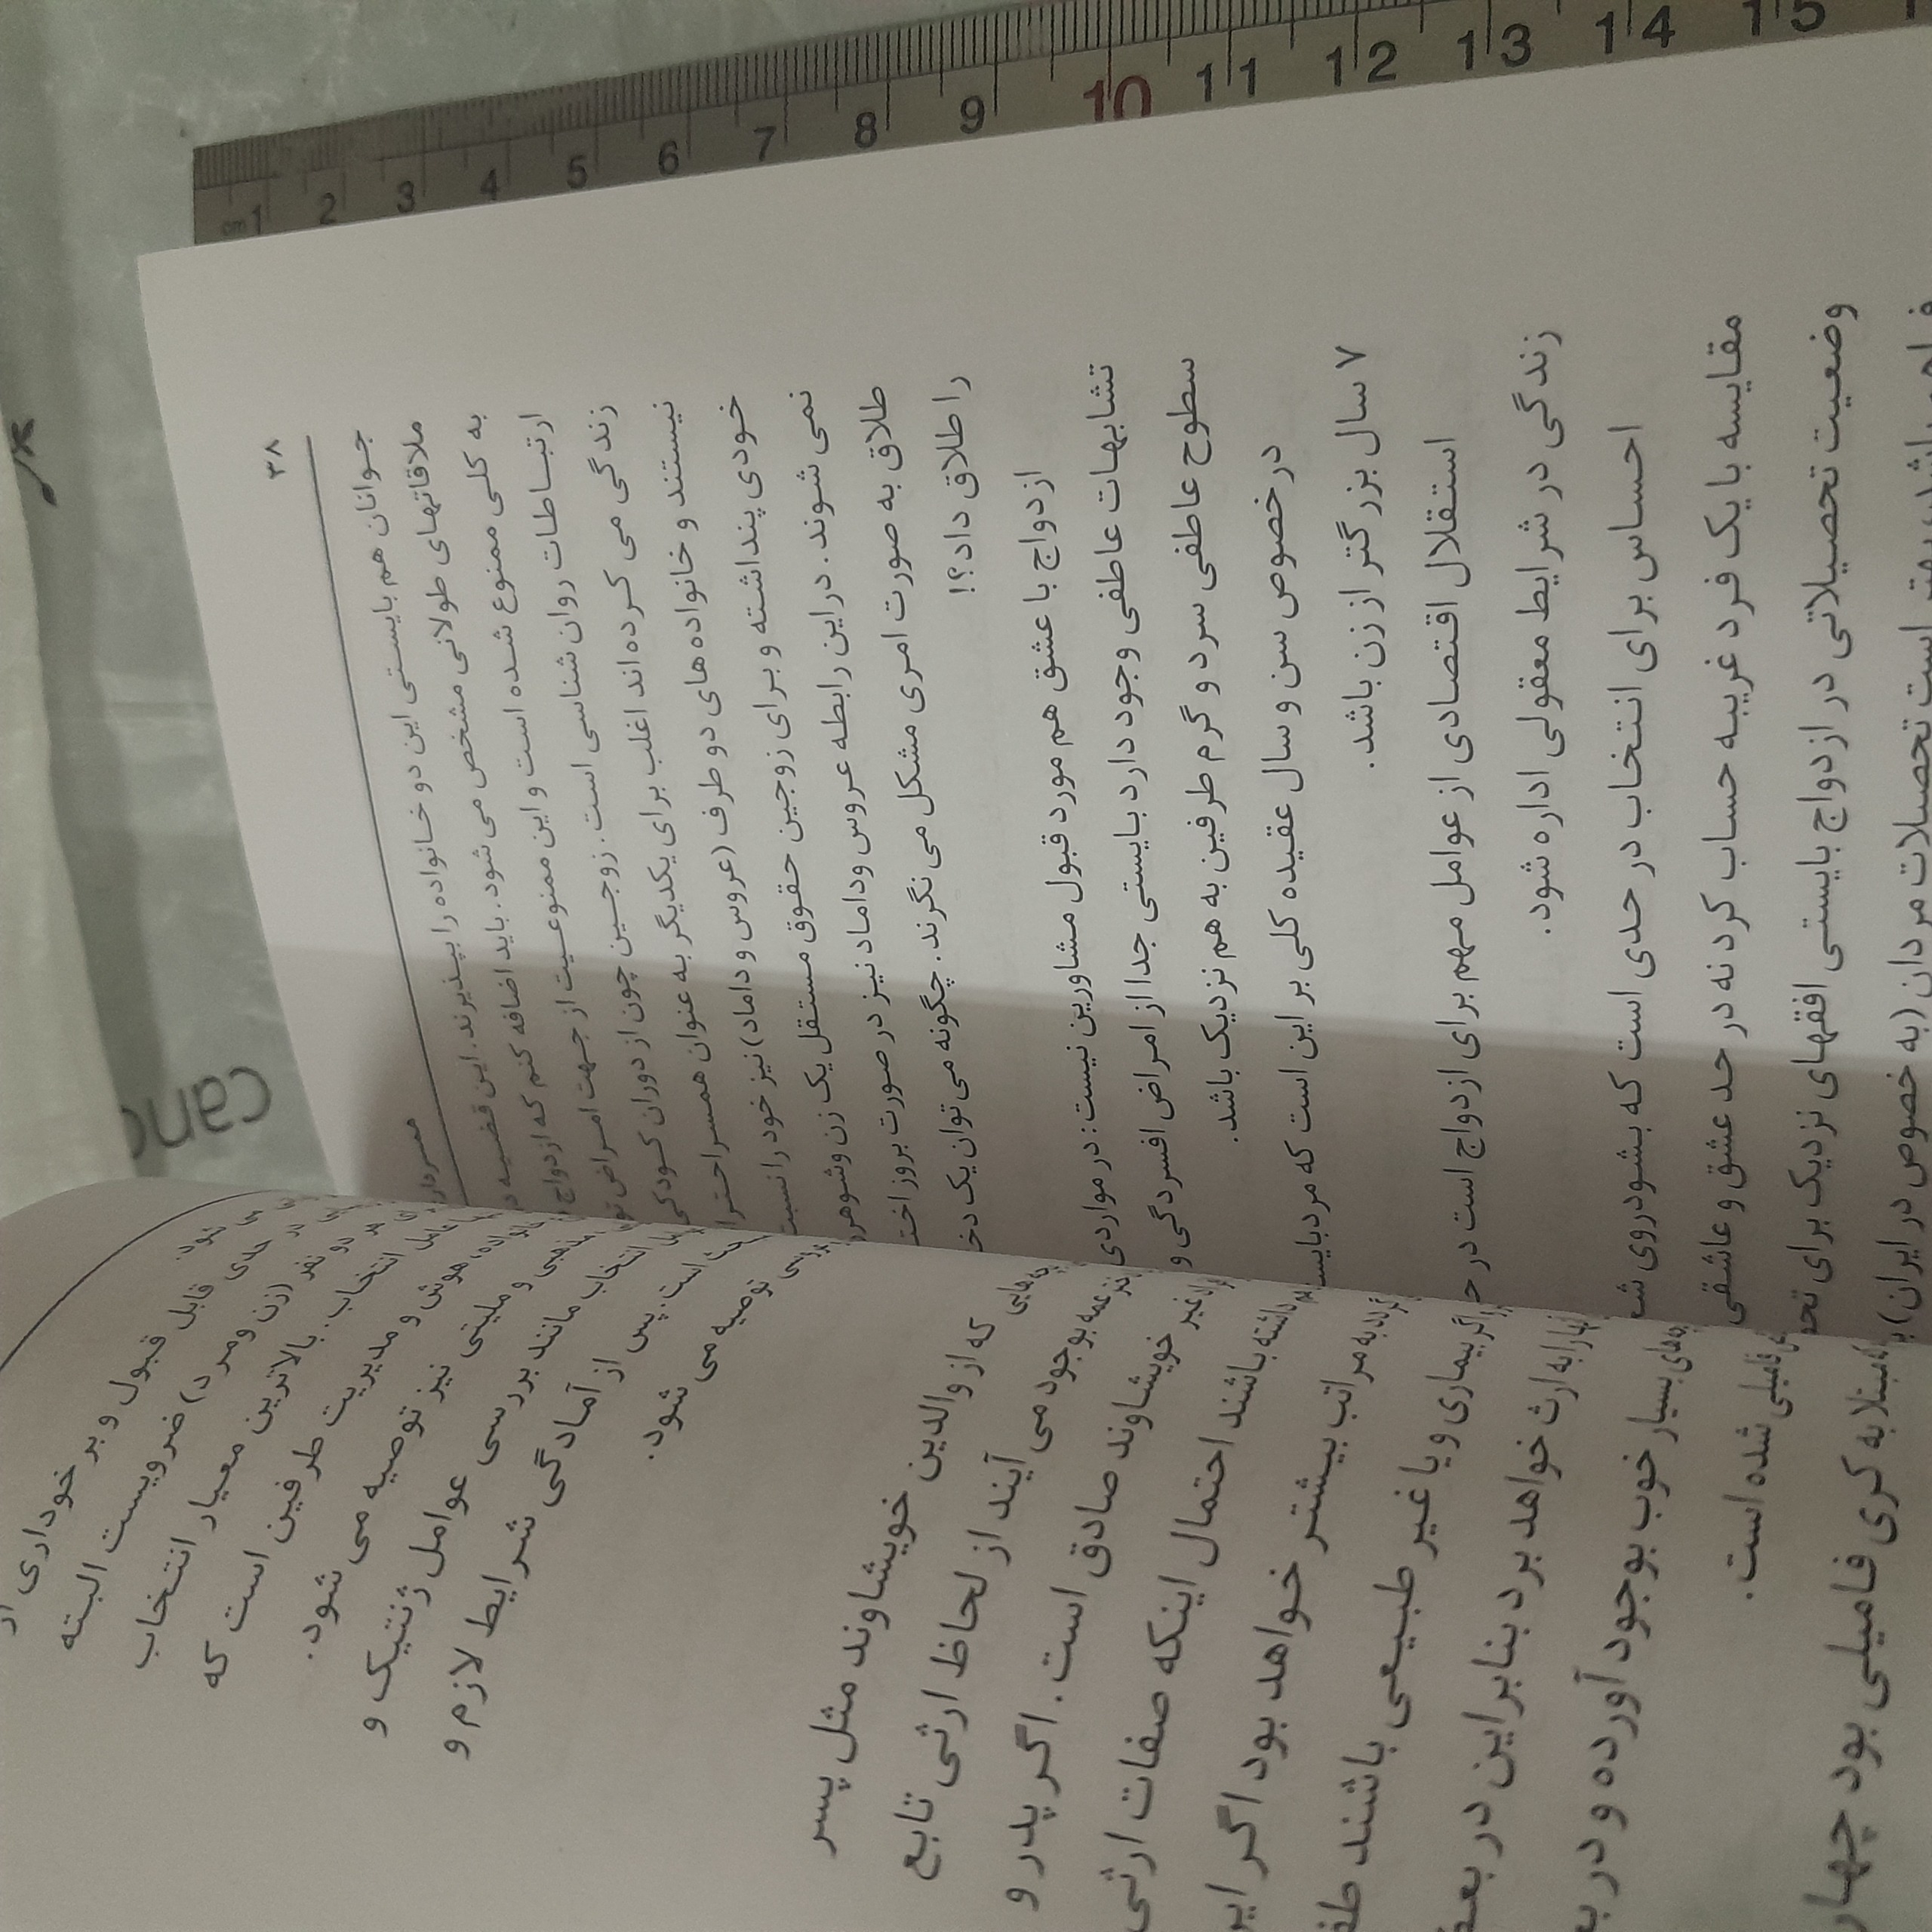 cm 1 2 3 4 5 6 7 8 9 10 11 12 13 14 15
canc
۳۸
جوانان هم بایستی این دو خانواده را بپذیرند. این قضیه
ملاقاتهای طولانی مشخص می شود. باید اضافه کنم که ازدواج
به کلی ممنوع شده است و این ممنوعیت از جهت امراض
ارتباطات روان شناسی است. زوجین چون از دوران کودکی
زندگی می کرده اند اغلب برای یکدیگر به عنوان همسر
نیستند و خانواده های دو طرف (عروس و داماد) نیز خود را نسبت
خودی پنداشته و برای زوجین حقوق مستقل یک زن و شوهر
نمی شوند. در این رابطه عروس و داماد نیز در صورت بروز
طلاق به صورت امری مشکل می نگرند. چگونه می توان یک
را طلاق داد؟!
ازدواج با عشق هم مورد قبول مشاورین نیست: در مواردی
تشابهات عاطفی وجود دارد بایستی جدا از امراض افسردگی و
سطوح عاطفی سرد و گرم طرفین به هم نزدیک باشد.
در خصوص سن و سال عقیده کلی بر این است که مرد
۷ سال بزرگتر از زن باشد.
استقلال اقتصادی از عوامل مهم برای ازدواج است در
زندگی در شرایط معقولی اداره شود.
احساس برای انتخاب در حدی است که بشود روی
مقایسه با یک فرد غریبه حساب کرد نه در حد عشق و عاشقی
وضعیت تحصیلاتی در ازدواج بایستی افقهای نزدیک برای
است تحصیلات مردان (به خصوص در ایران)
می شود.
در حدی قابل قبول و برخورداری از
هر دو نفر (زن و مرد) ضروریست البته
عامل انتخاب. بالاترین معیار انتخاب
خانواده، هوش و مدیریت طرفین است که
مذهبی و ملیتی نیز توصیه می شود.
انتخاب مانند بررسی عوامل ژنتیک و
است. پس از آمادگی شرایط لازم و
توصیه می شود.
که از والدین خویشاوند مثل پسر
بوجود می آیند از لحاظ ارثی تابع
غیر خویشاوند صادق است. اگر پدر و
داشته باشند احتمال اینکه صفات ارثی
به مراتب بیشتر خواهد بود اگر
اگر بیماری و یا غیر طبیعی باشند
را به ارث خواهد برد بنابراین در
بسیار خوب بوجود آورده و در
فامیلی شده است.
مبتلا به کری فامیلی بود